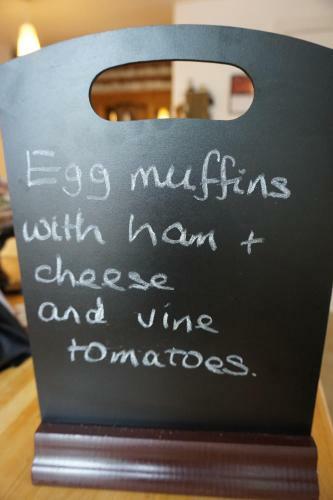 Egg muffins
with ham +
cheese
and vine
tomatoes.